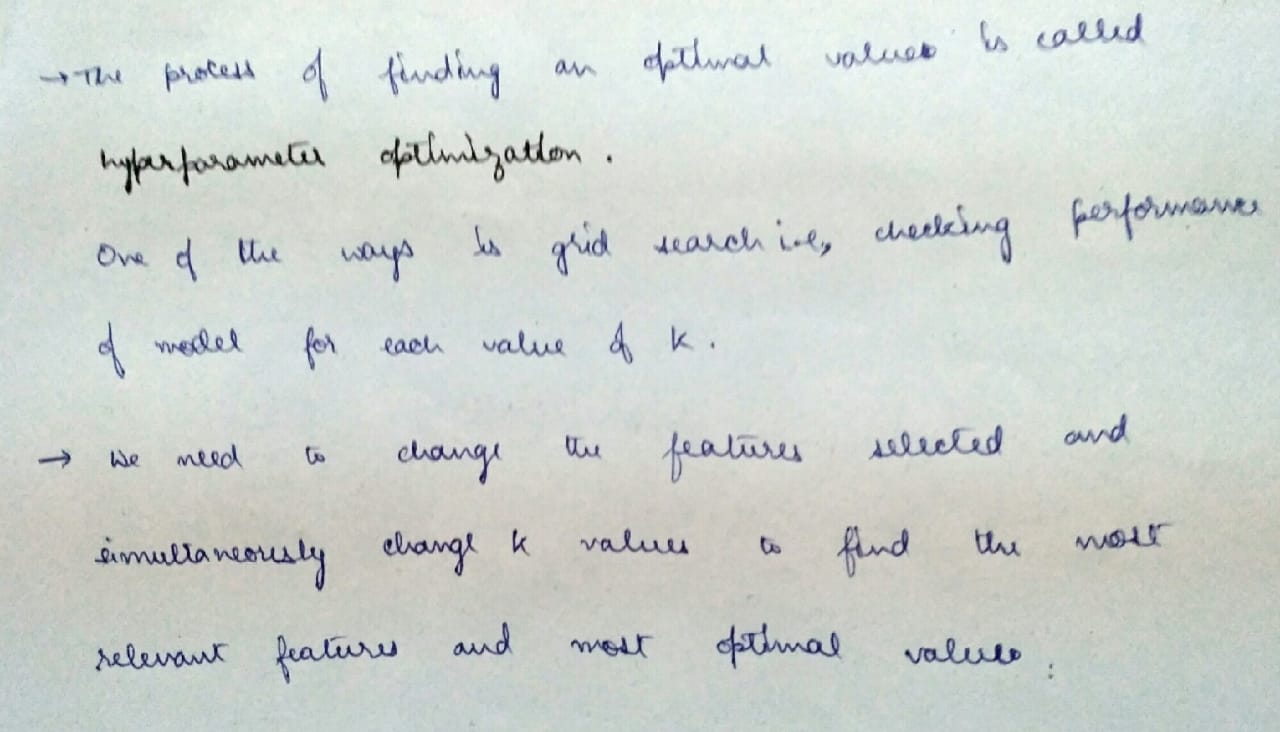 → The process of finding an optimal values is called
hyperparameter optimization.
One of the ways is grid search i.e, checking performance
of model for each value of k.
→ We need to change the features selected and
simultaneously change k values to find the most
relevant features and most optimal values.